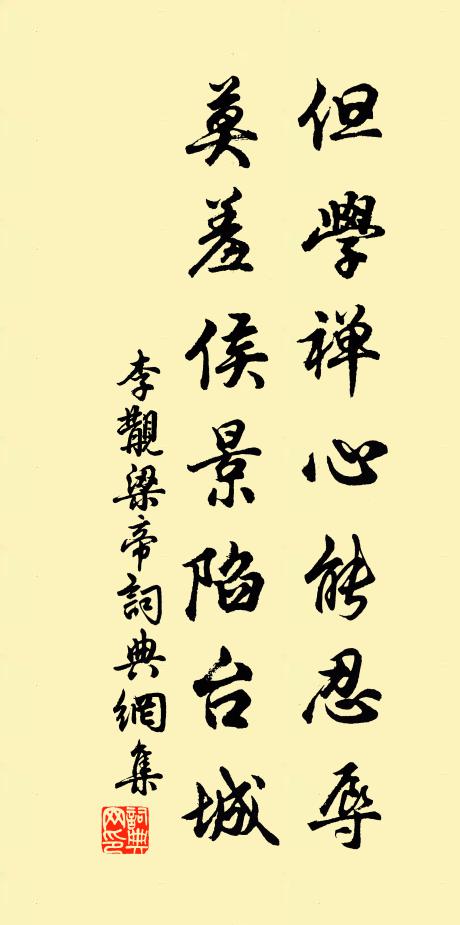 但學禅心能忍辱
莫羞侯景陷台城
李覯梁帝詞典網集
詞典網印